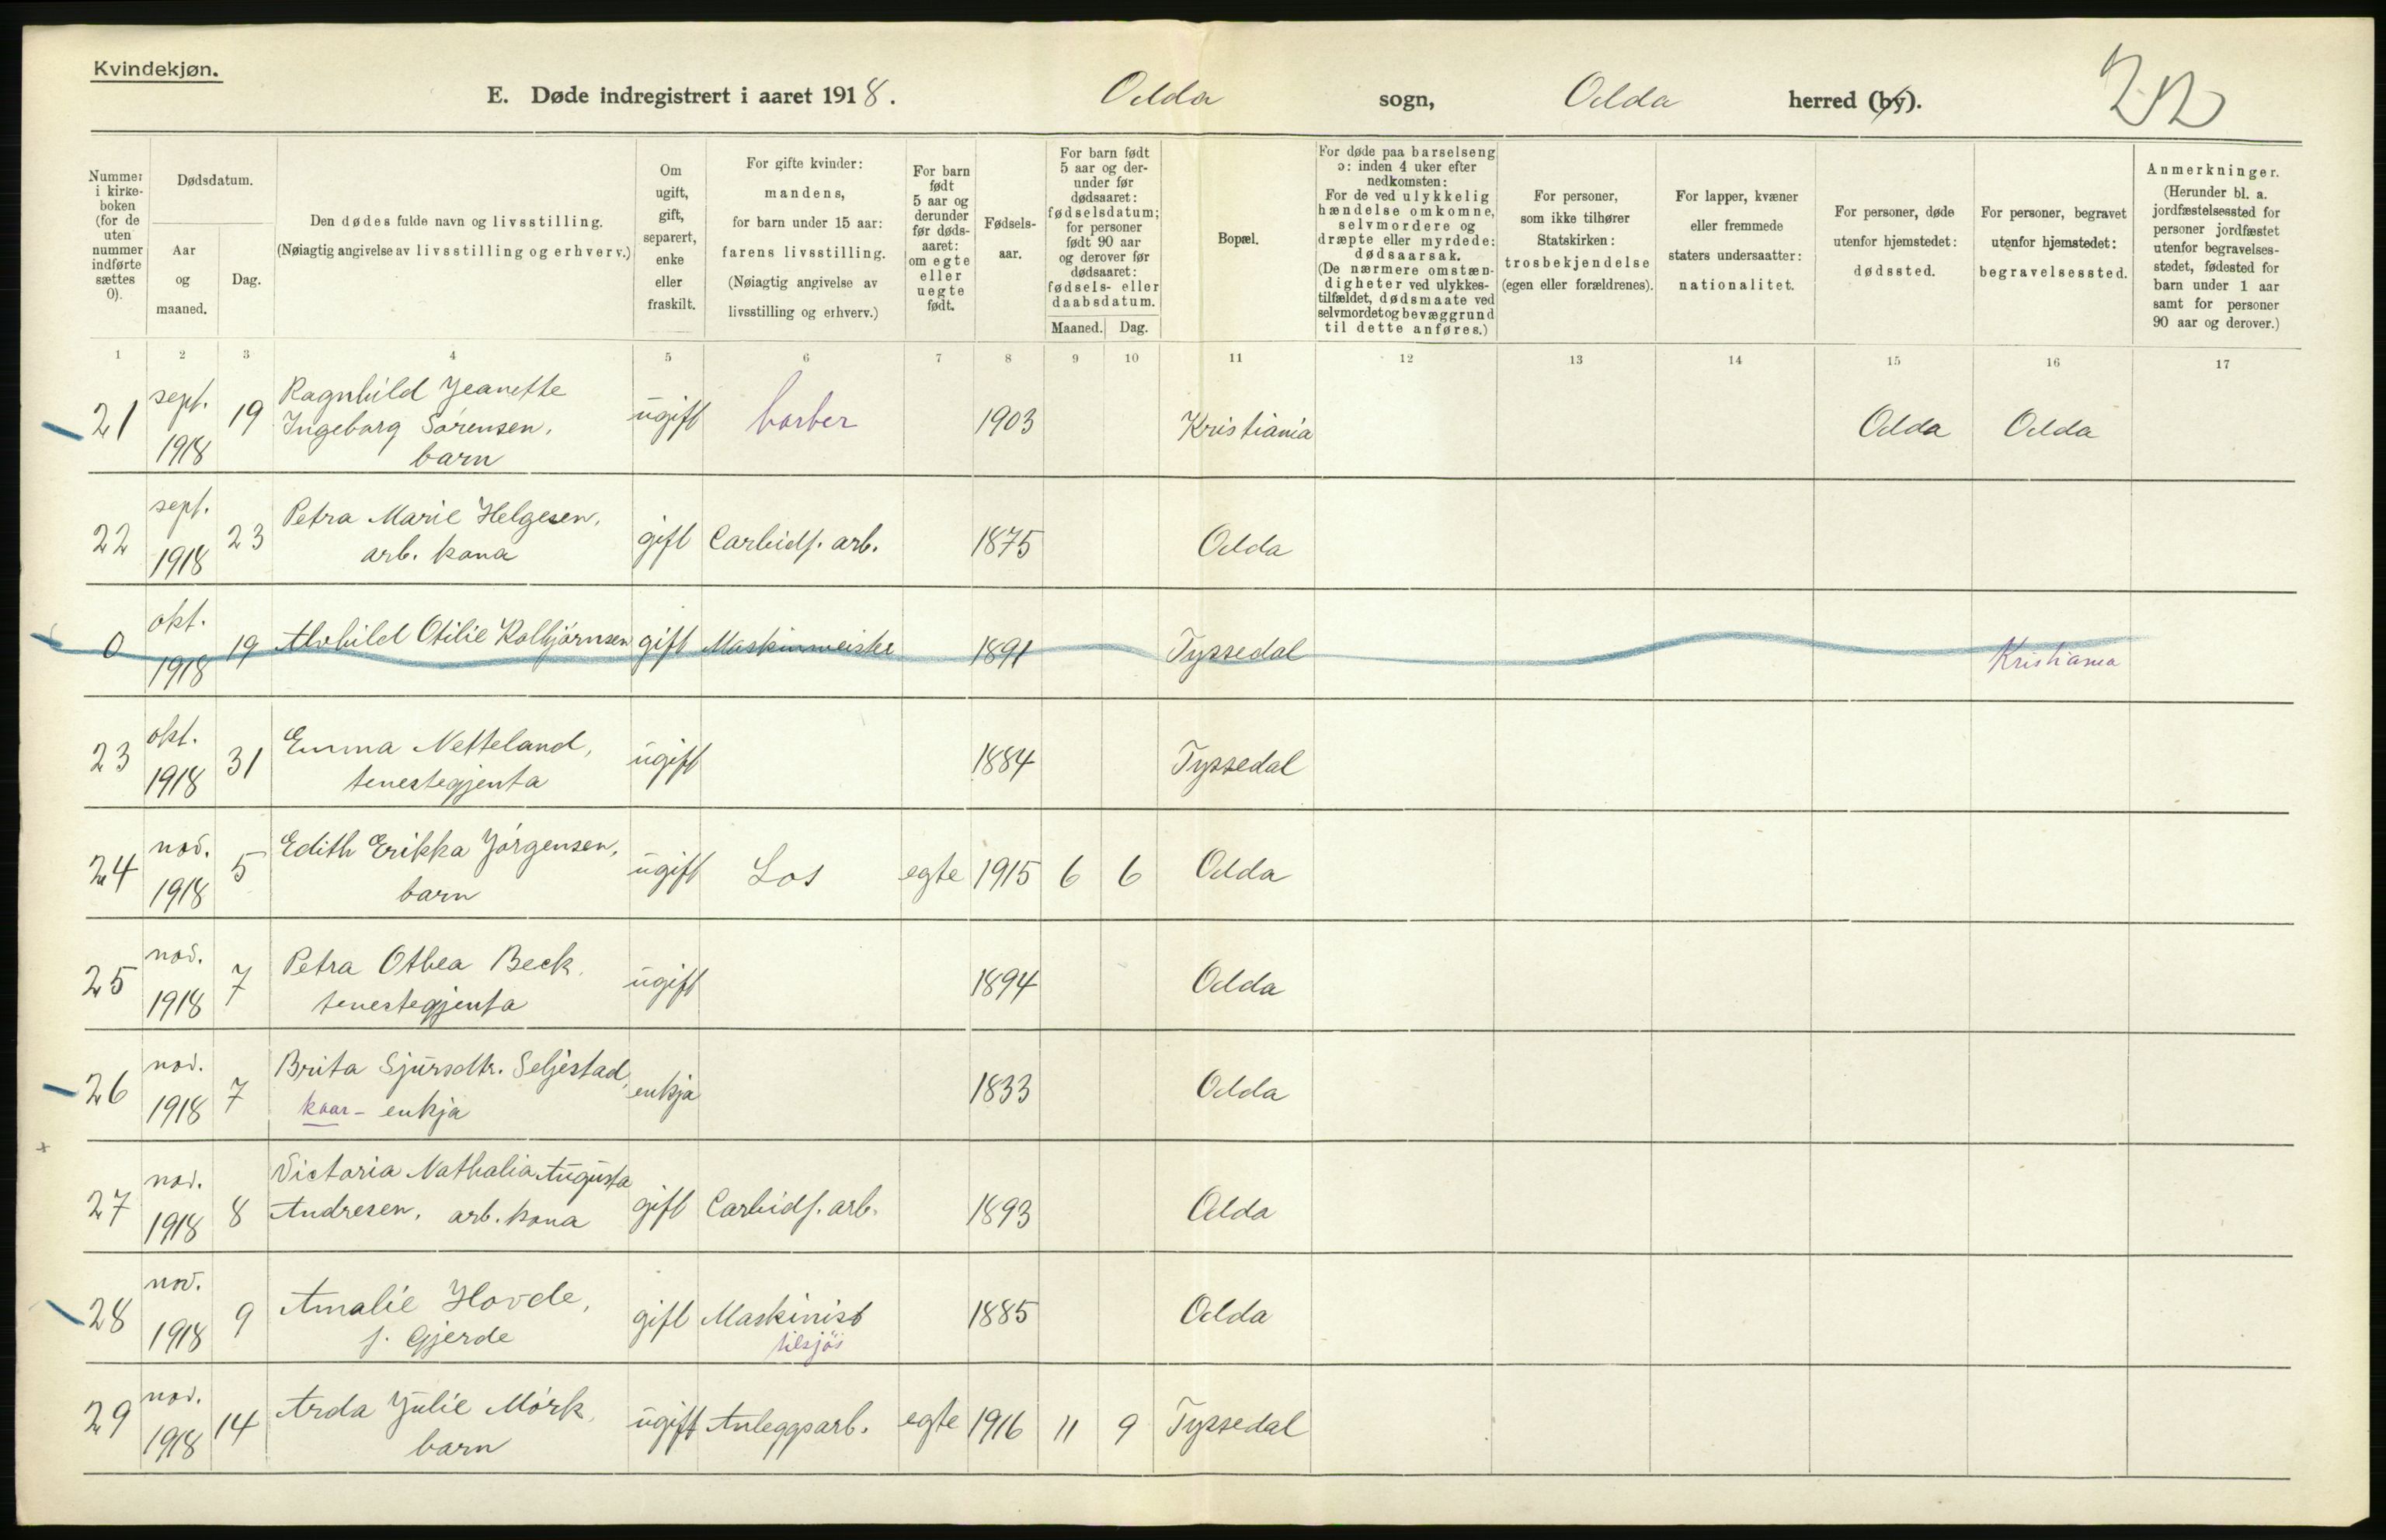 Kvindekjøn.
E. Døde indregistrert i aaret 1918. Odda sogn, Odda herred (by).
22
Nummer i kirkeboken (for de uten nummer indførte sættes 0).
Dødsdatum.
Aar og maaned.
Dag.
Den dødes fulde navn og livsstilling.
(Nøiagtig angivelse av livsstilling og erhverv.)
Om ugift, gift, separert, enke eller fraskilt.
For gifte kvinder: mandens, for barn under 15 aar: farens livsstilling. (Nøiagtig angivelse av livsstilling og erhverv.)
For barn født 5 aar og derunder før dødsaaret: om egte eller uegte født.
Fødselsaar.
For barn født 5 aar og derunder før dødsaaret: fødselsdatum; for personer født 90 aar og derover før dødsaaret: fødsels- eller daabsdatum.
Maaned. Dag.
Bopæl.
For døde paa barselseng ɔ: inden 4 uker efter nedkomsten: For de ved ulykkelig hændelse omkomne, selvmordere og dræpte eller myrdede: dødsaarsak. (De nærmere omstændigheter ved ulykkestilfældet, dødsmaate ved selvmordet og bevæggrund til dette anføres.)
For personer, som ikke tilhører Statskirken: trosbekjendelse (egen eller forældrenes).
For lapper, kvæner eller fremmede staters undersaatter: nationalitet.
For personer, døde utenfor hjemstedet: dødssted.
For personer, begravet utenfor hjemstedet: begravelsessted.
Anmerkninger. (Herunder bl. a. jordfæstelsessted for personer jordfæstet utenfor begravelsesstedet, fødested for barn under 1 aar samt for personer 90 aar og derover.)
1 2 3 4 5 6 7 8 9 10 11 12 13 14 15 16 17
21 sept. 1918 19 Ragnhild Jeanette
Ingeborg Sørensen,
barn ugift barber 1903 Kristiania Odda Odda
22 sept. 1918 23 Petra Marie Helgesen,
arb. kona gift Carbidf. arb. 1875 Odda
0 okt. 1918 19 Alvhild Otilie Kolbjørnsen gift Maskinmeister 1891 Tyssedal Kristiania
23 okt. 1918 31 Emma Netteland,
tenestegjenta ugift 1884 Tyssedal
24 nov. 1918 5 Edith Erikka Jørgensen,
barn ugift Los egte 1915 6 6 Odda
25 nov. 1918 7 Petra Othea Beck,
tenestegjenta ugift 1894 Odda
26 nov. 1918 7 Brita Sjursdtr. Seljestad,
kaar- enkja enkja 1833 Odda
27 nov. 1918 8 Victoria Nathalia Augusta
Andresen, arb. kona gift Carbidf. arb. 1893 Odda
28 nov. 1918 9 Amalie Hovde,
f. Gjerde gift Maskinist
tilsjøs 1885 Odda
29 nov. 1918 14 Arda Julie Mørk,
barn ugift Anleggsarb. egte 1916 11 9 Tyssedal